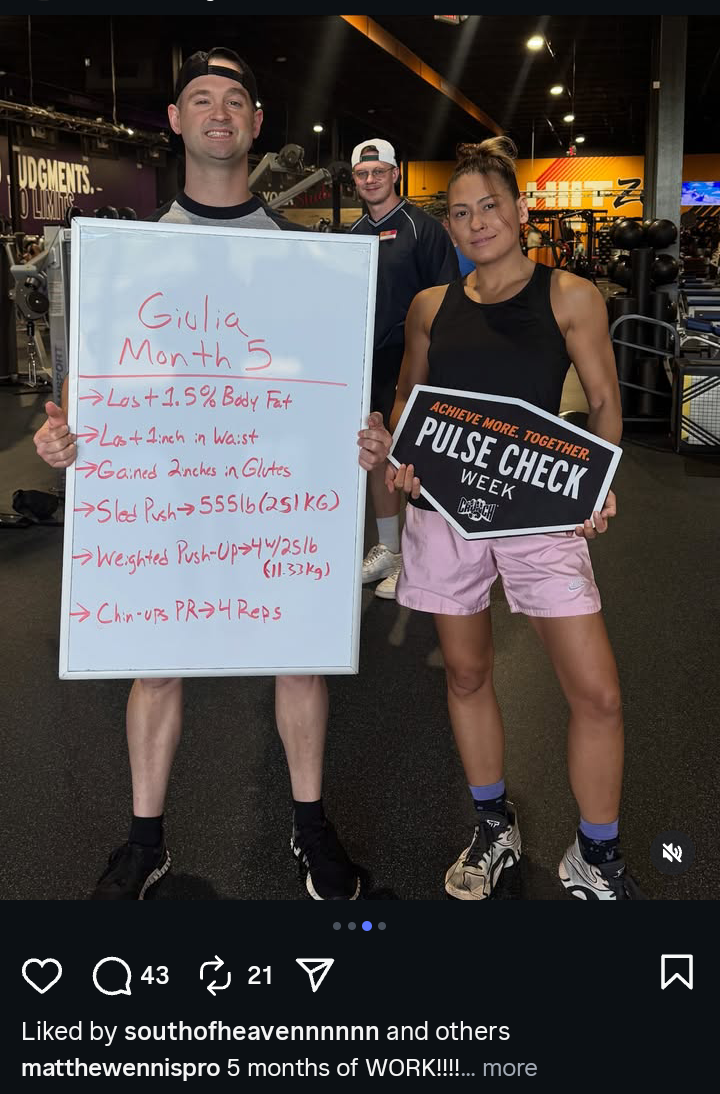 JUDGMENTS.
LIMITS
HIIT Z
Giulia
Month 5
→Lost 1.5% Body Fat
→Lost 1inch in Waist
→Gained 2inches in Glutes
→Sled Push→555lb(251KG)
→Weighted Push-Up→4w/25lb
(11.33kg)
→Chin-ups PR→4 Reps
ACHIEVE MORE. TOGETHER.
PULSE CHECK
WEEK
CRUNCH
43
21
Liked by southofheavennnnnn and others
matthewennispro 5 months of WORK!!!!... more